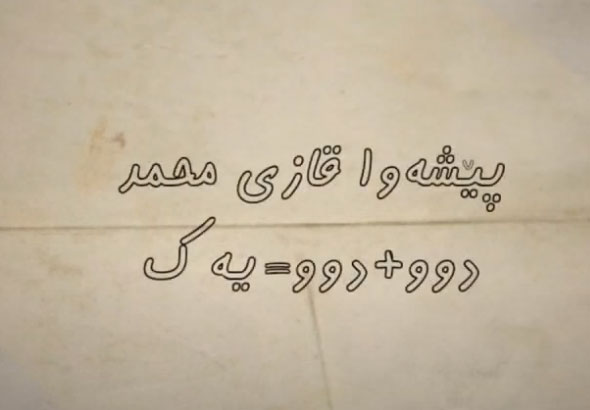 پێشەوا قازی محمد
دوو+دوو=یە ک